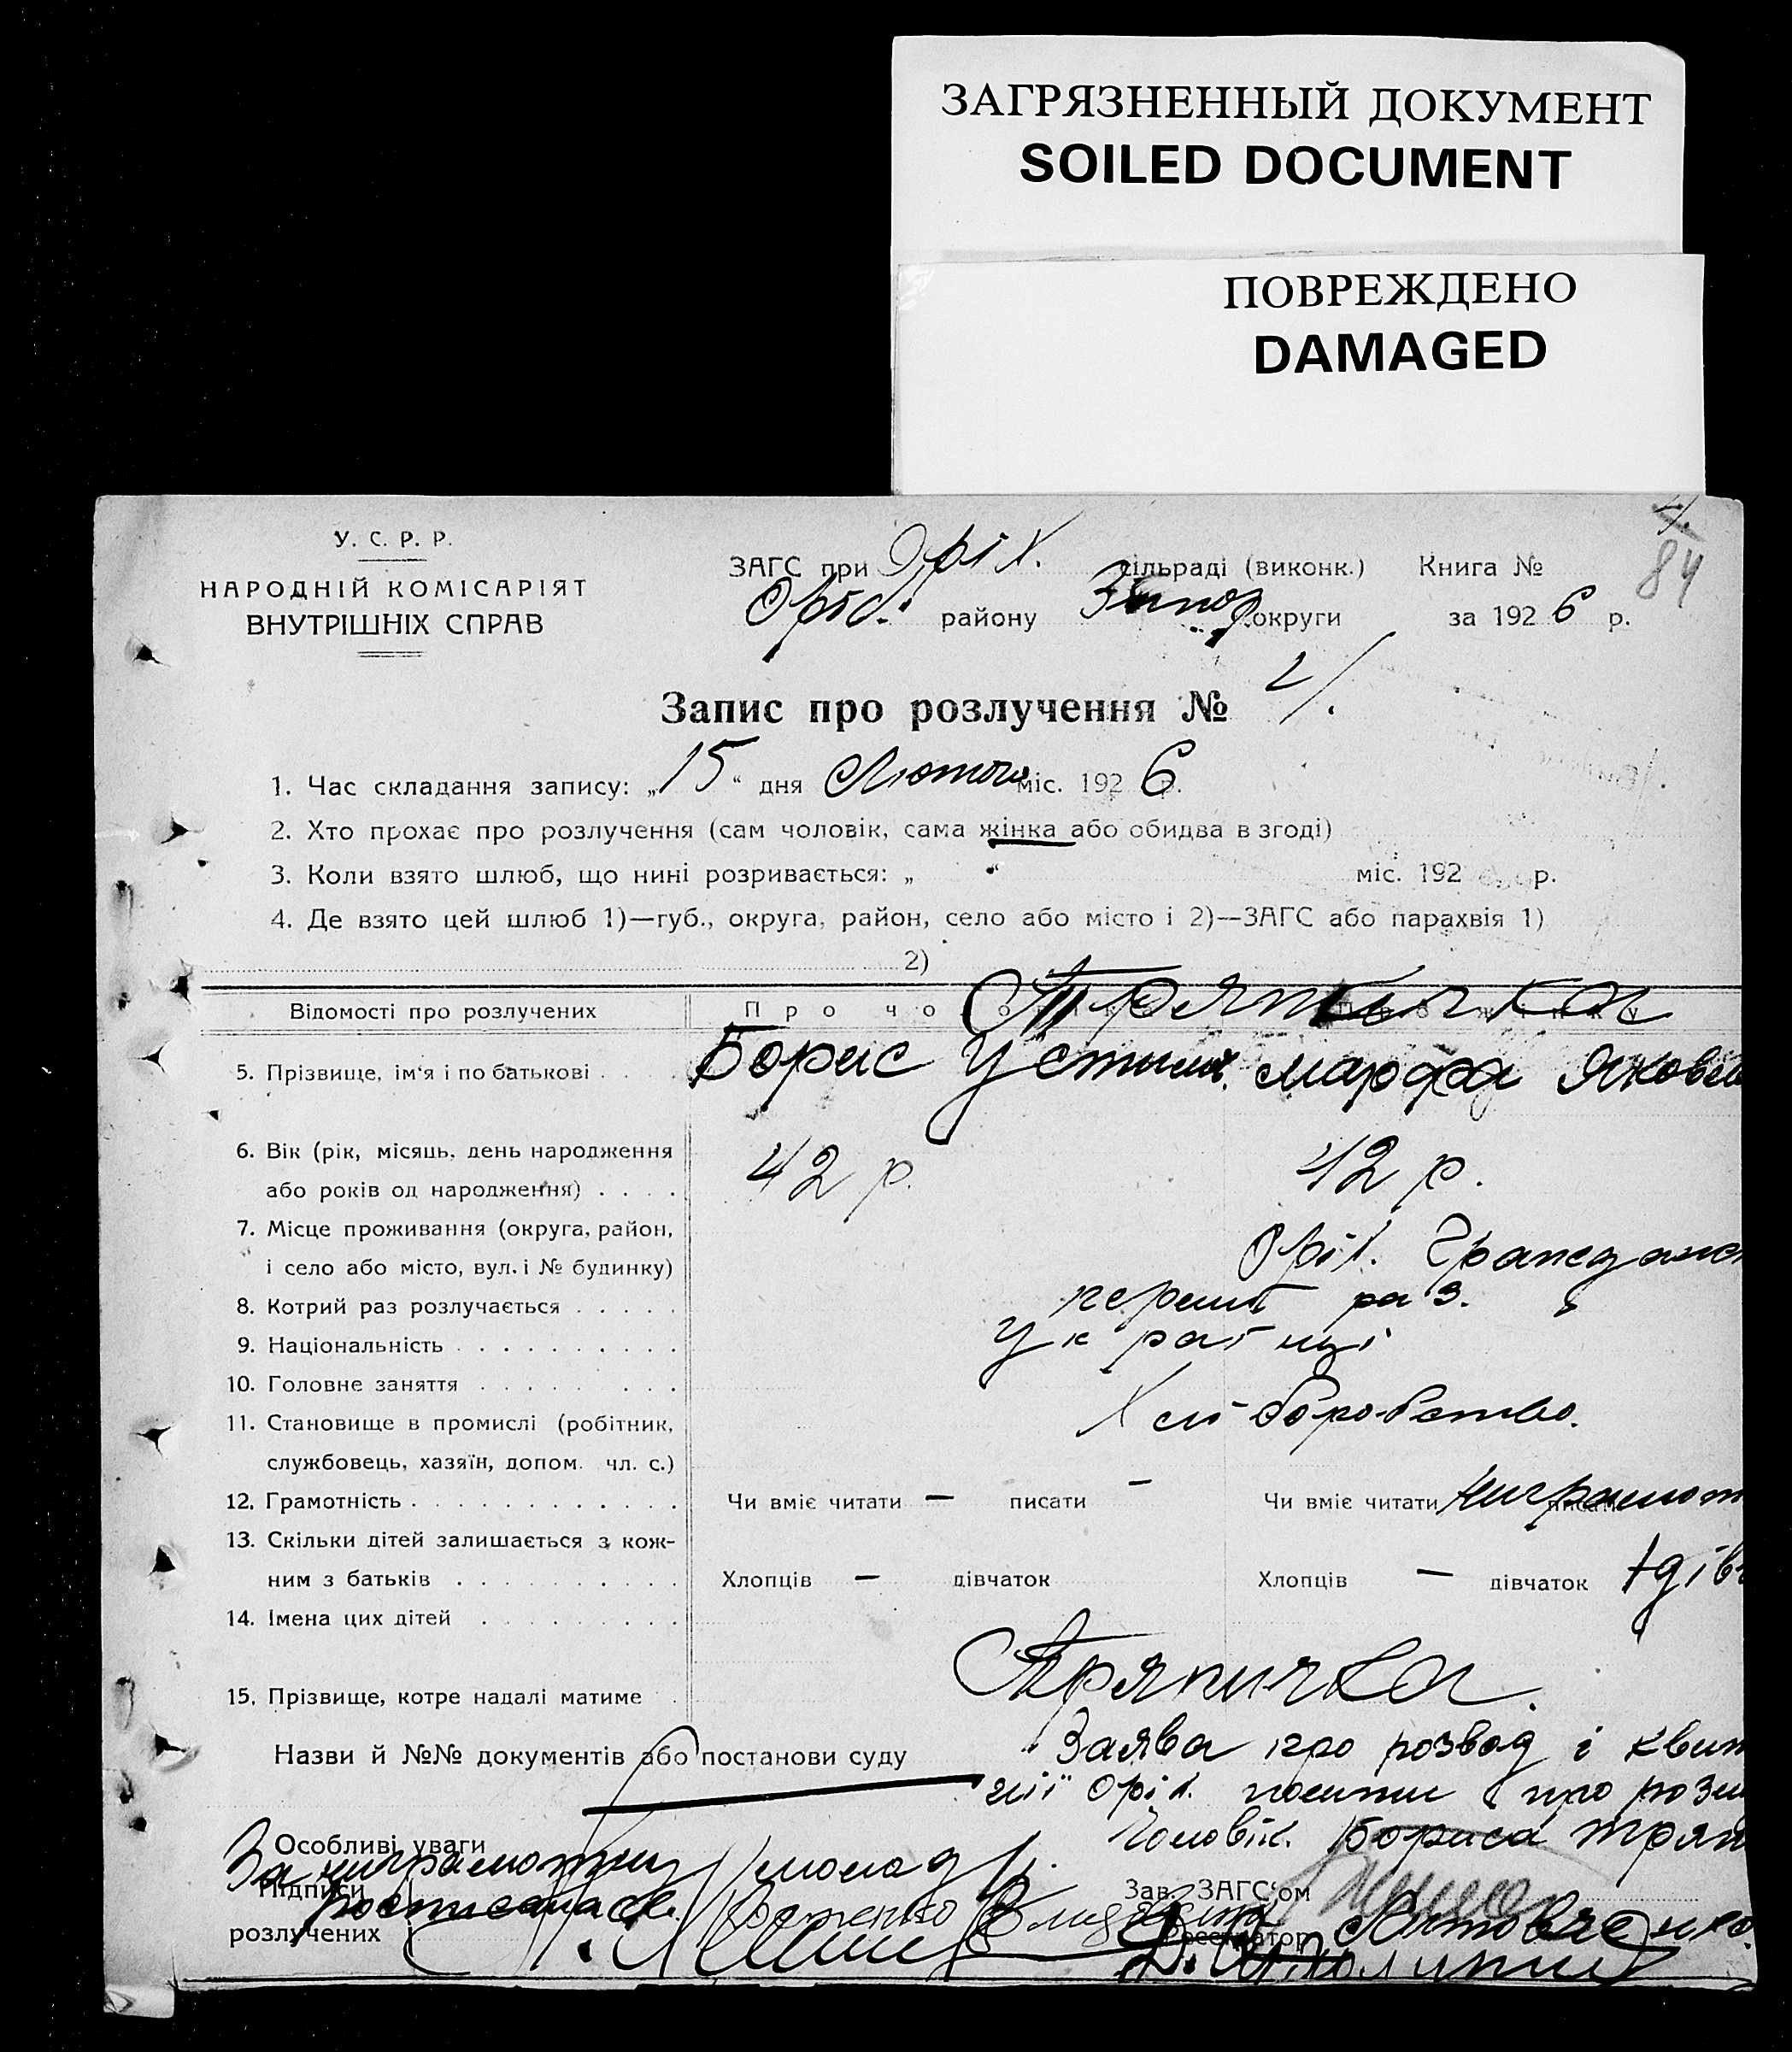 ЗАГРЯЗНЕННЫЙ ДОКУМЕНТ
SOILED DOCUMENT
ПОВРЕЖДЕНО
DAMAGED
84
У. С. Р. Р.
НАРОДНІЙ КОМІСАРІЯТ
ВНУТРІШНІХ СПРАВ
ЗАГС при Оріх. сільраді (виконк.) Книга №
Оріх. району Запор. округи за 1926 р.
Запис про розлучення № 2/.
1. Час складання запису: „15“ дня Лютого міс. 1926 р.
2. Хто прохає про розлучення (сам чоловік, сама жінка або обидва в згоді)
3. Коли взято шлюб, що нині розривається: „ “ міс. 192 р.
4. Де взято цей шлюб 1)—губ., округа, район, село або місто і 2)—ЗАГС або парахвія 1)
2)
Тряпичка
Відомості про розлучених
5. Прізвище, ім'я і по батькові Борис Устим. Марфа Яковл
6. Вік (рік, місяць, день народження
або років од народження) 42 р. 42 р.
7. Місце проживання (округа, район,
і село або місто, вул. і № будинку) Оріх.
8. Котрий раз розлучається перший раз.
9. Національність українці
10. Головне заняття
11. Становище в промислі (робітник, Хліборобство.
службовець, хазяїн, допом. чл. с.)
12. Грамотність Чи вміє читати — писати — Чи вміє читати писати неграмот
13. Скільки дітей залишається з кож-
ним з батьків Хлопців — дівчаток Хлопців — дівчаток 1 дівч
14. Імена цих дітей
15. Прізвище, котре надалі матиме Тряпичка.
Назви й №№ документів або постанови суду Заява про розвод і квит
ції Оріх. пошти про розш
Особливі уваги чоловік. Бориса Тряп
За неграмотну
Підписи росписалася Зав. ЗАГС'ом
розлучених